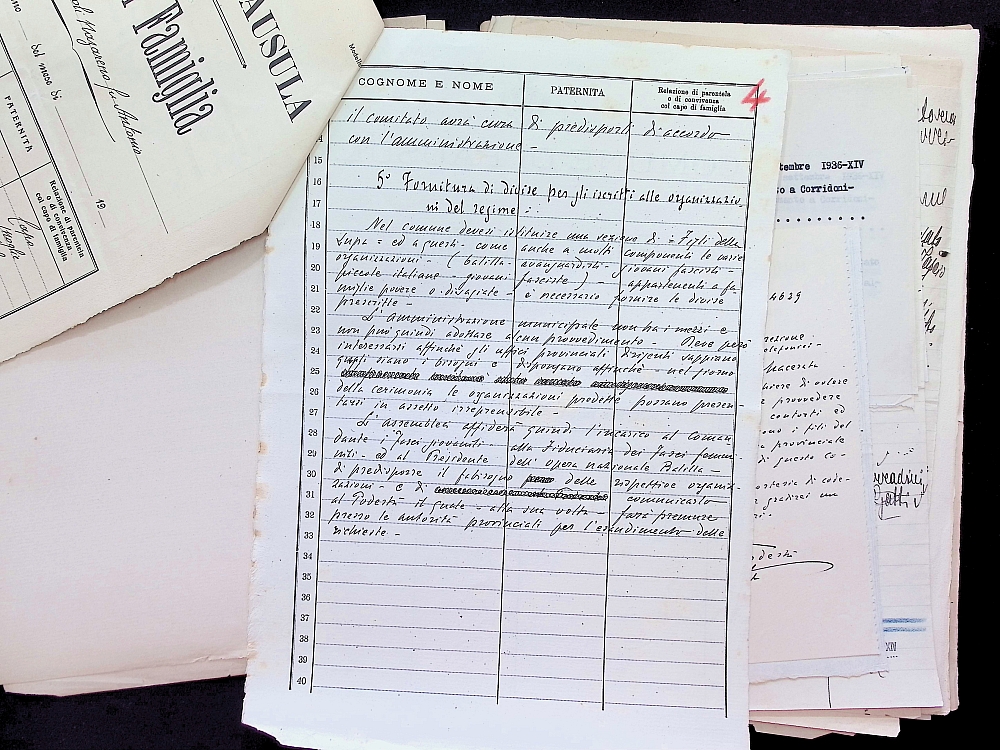 AUSULA
Famiglia
del mese di
19
PATERNITÀ
Relazione di parentela
o di convivenza
col capo di famiglia
Capo
Moglie
COGNOME E NOME
PATERNITÀ
Relazione di parentela
o di convivenza
col capo di famiglia
4
il comitato avrà cura di predisporli di accordo
con l'amministrazione -
5° Fornitura di divise per gli iscritti alle organizzazio-
ni del regime :
Nel comune devesi istituire una sezione di = Figli della
Lupa = ed a questi - come anche a molti componenti le varie
organizzazioni - ( balilla - avanguardisti - giovani fascisti -
piccole italiane - giovani fasciste ) - appartenenti a fa-
miglie povere o disagiate - è necessario fornire le divise
prescritte -
L'amministrazione municipale non ha i mezzi e
non può quindi adottare alcun provvedimento - Deve però
interessarsi affinché gli uffici provinciali dirigenti sappiano
quali siano i bisogni e dispongano affinché - nel giorno
della cerimonia le organizzazioni predette possano presen-
tarsi in assetto irreprensibile -
L'assemblea affiderà quindi l'incarico al Coman
dante i Fasci giovanili - alla Fiduciaria dei Fasci femmi-
nili - ed al Presidente dell'opera nazionale Balilla -
di predisporre il fabisogno delle rispettive organiz-
zazioni e di comunicarlo
al Podestà il quale - alla sua volta - farà premure
presso le autorità provinciali per l'esaudimento delle
richieste -
14
15
16
17
18
19
20
21
22
23
24
25
26
27
28
29
30
31
32
33
34
35
36
37
38
39
40
tembre 1936-XIV
to a Corridoni-
4629
Macerata
provvedere
contorti ed
i fili del
provinciale
di questo co-
gradirei un
XIV